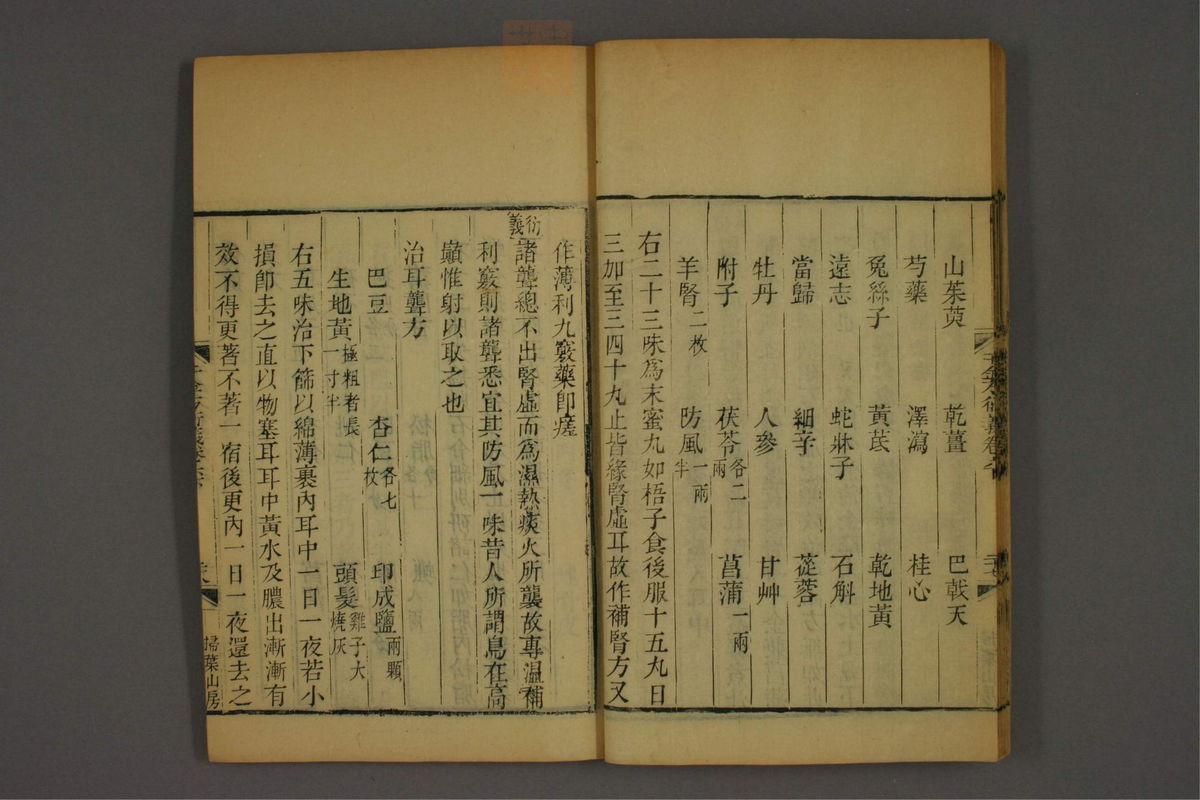 山茱萸　乾薑　巴戟天
芍藥　澤瀉　桂心
兔絲子　黃芪　乾地黃
遠志　蛇牀子　石斛
當歸　細辛　蓯蓉
牡丹　人參　甘艸
附子　茯苓各二兩　菖蒲一兩
羊腎二枚　防風一兩半
右二十三味爲末蜜丸如梧子食後服十五丸日
三加至三四十丸止皆緣腎虛耳故作補腎方又
作薄利九竅藥卽瘥
衍義諸聾總不出腎虛而爲濕熱痰火所襲故專溫補
利竅則諸聾悉宜其防風一味昔人所謂鳥在高
巔惟射以取之也
治耳聾方
巴豆　杏仁各七枚　印成鹽兩顆
生地黃極粗者長一寸半　頭髮雞子大燒灰
右五味治下篩以綿薄裹內耳中一日一夜若小
損卽去之直以物塞耳耳中黃水及膿出漸漸有
效不得更著不著一宿後更內一日一夜還去之
千金方衍義卷六
掃葉山房